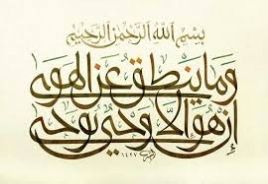 بسم الله الرحمن الرحيم
وما ينطق عن الهوى
إن هو إلا وحي يوحى
١٤٢٧